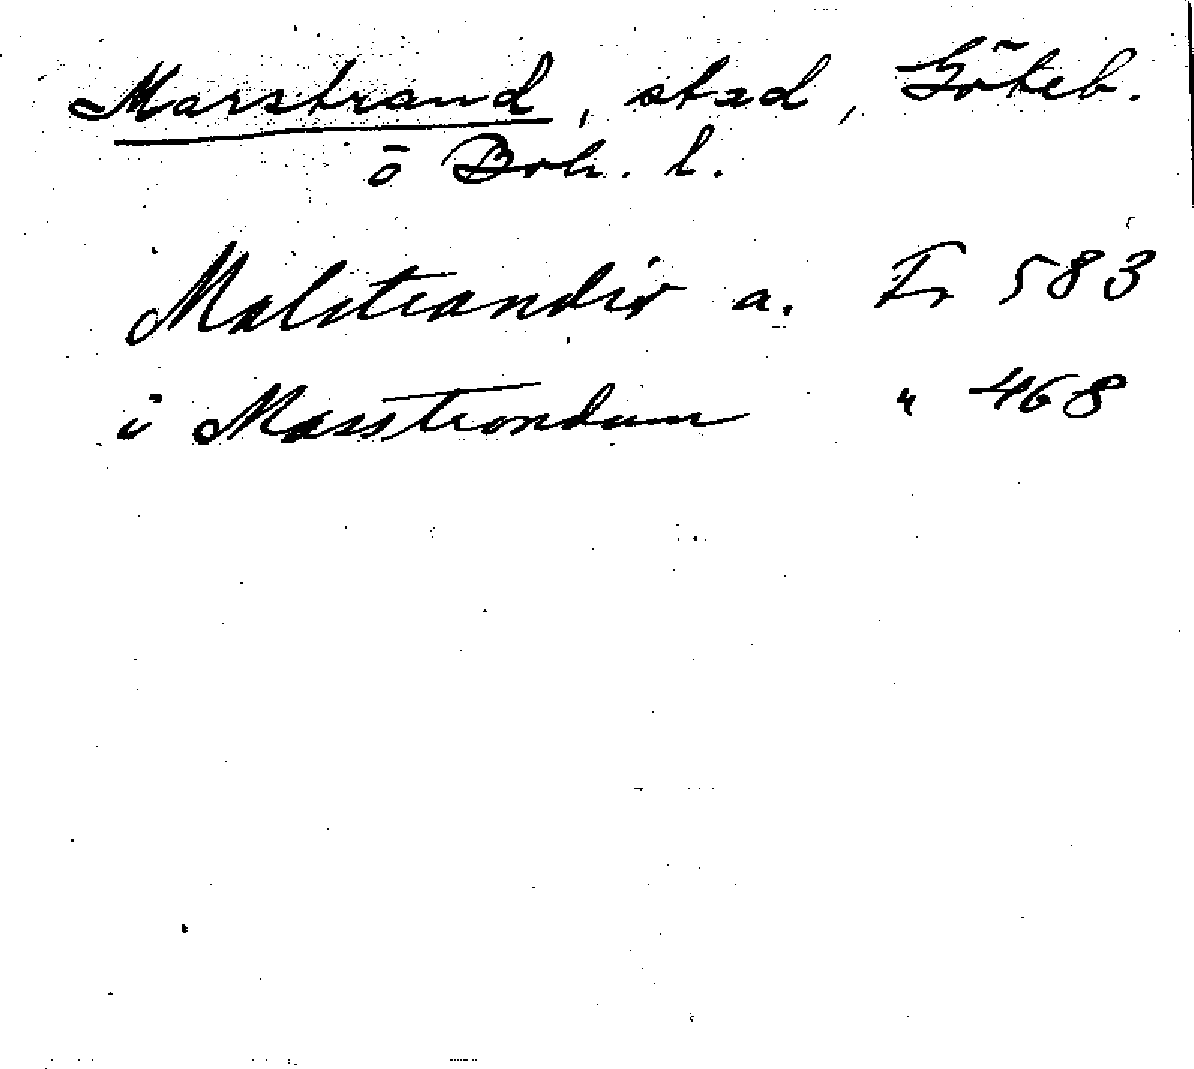 Marstrand, stad, Göteb.
ō Boh. l.
Malstrandir a. Fr 583
i Masstrondum " 468